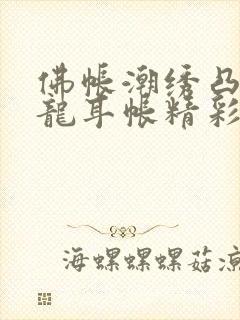 佛帐潮绣凸
龍耳帐精彩
海螺螺螺菇凉